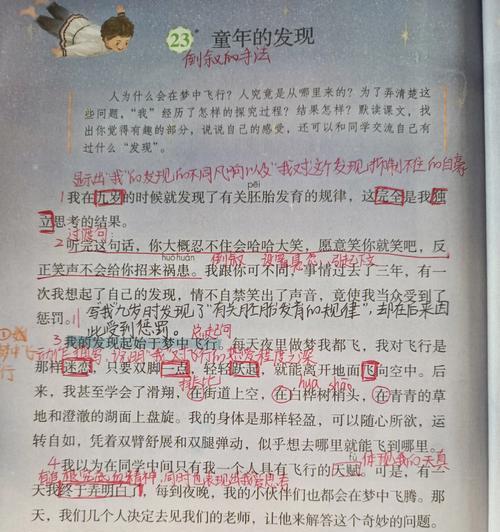 23* 童年的发现
倒叙的手法
人为什么会在梦中飞行？人究竟是从哪里来的？为了弄清楚这
些问题，“我”经历了怎样的探究过程？结果怎样？默读课文，找
出你觉得有趣的部分，说说自己的感受，还可以和同学交流自己有
过什么“发现”。
显示出“我”的发现的不同凡响以及“我”对这个发现抑制不住的自豪
pēi
1我在九岁的时候就发现了有关胚胎发育的规律，这完全是我独
立思考的结果。
过渡句：
2听完这句话，你大概忍不住会哈哈大笑，愿意笑你就笑吧，反
huò huàn 倒叙 设置悬念 引起下文
正笑声不会给你招来祸患。我跟你可不同，事情过去了三年，有一
次我想起了自己的发现，情不自禁笑出了声音，竟使我当众受到了
惩罚。 写我九岁时发现了“有关胚胎发育的规律”，却在后来因
此受到惩罚。
总起句
3我的发现起始于梦中飞行。每天夜里做梦我都飞，我对飞行是
①我
梦中飞
行
说明“我”对飞行的热爱程度之深
那样迷恋，只要双脚一点，轻轻跃起，就能离开地面飞向空中。后
排比 huà shāo
来，我甚至学会了滑翔，在街道上空，在白桦树梢头，在青青的草
地和澄澈的湖面上盘旋。我的身体是那样轻盈，可以随心所欲，运
转自如，凭着双臂舒展和双腿弹动，似乎想去哪里就能飞到哪里。
fù
4我以为在同学中间只有我一个人具有飞行的天赋。可是，有一
体现我的天真
同时也表现出我爱思考
天我终于弄明白了，每到夜晚，我的小伙伴们也都会在梦中飞腾。那
天，我们几个人决定去见我们的老师，让他来解答这个奇妙的问题。